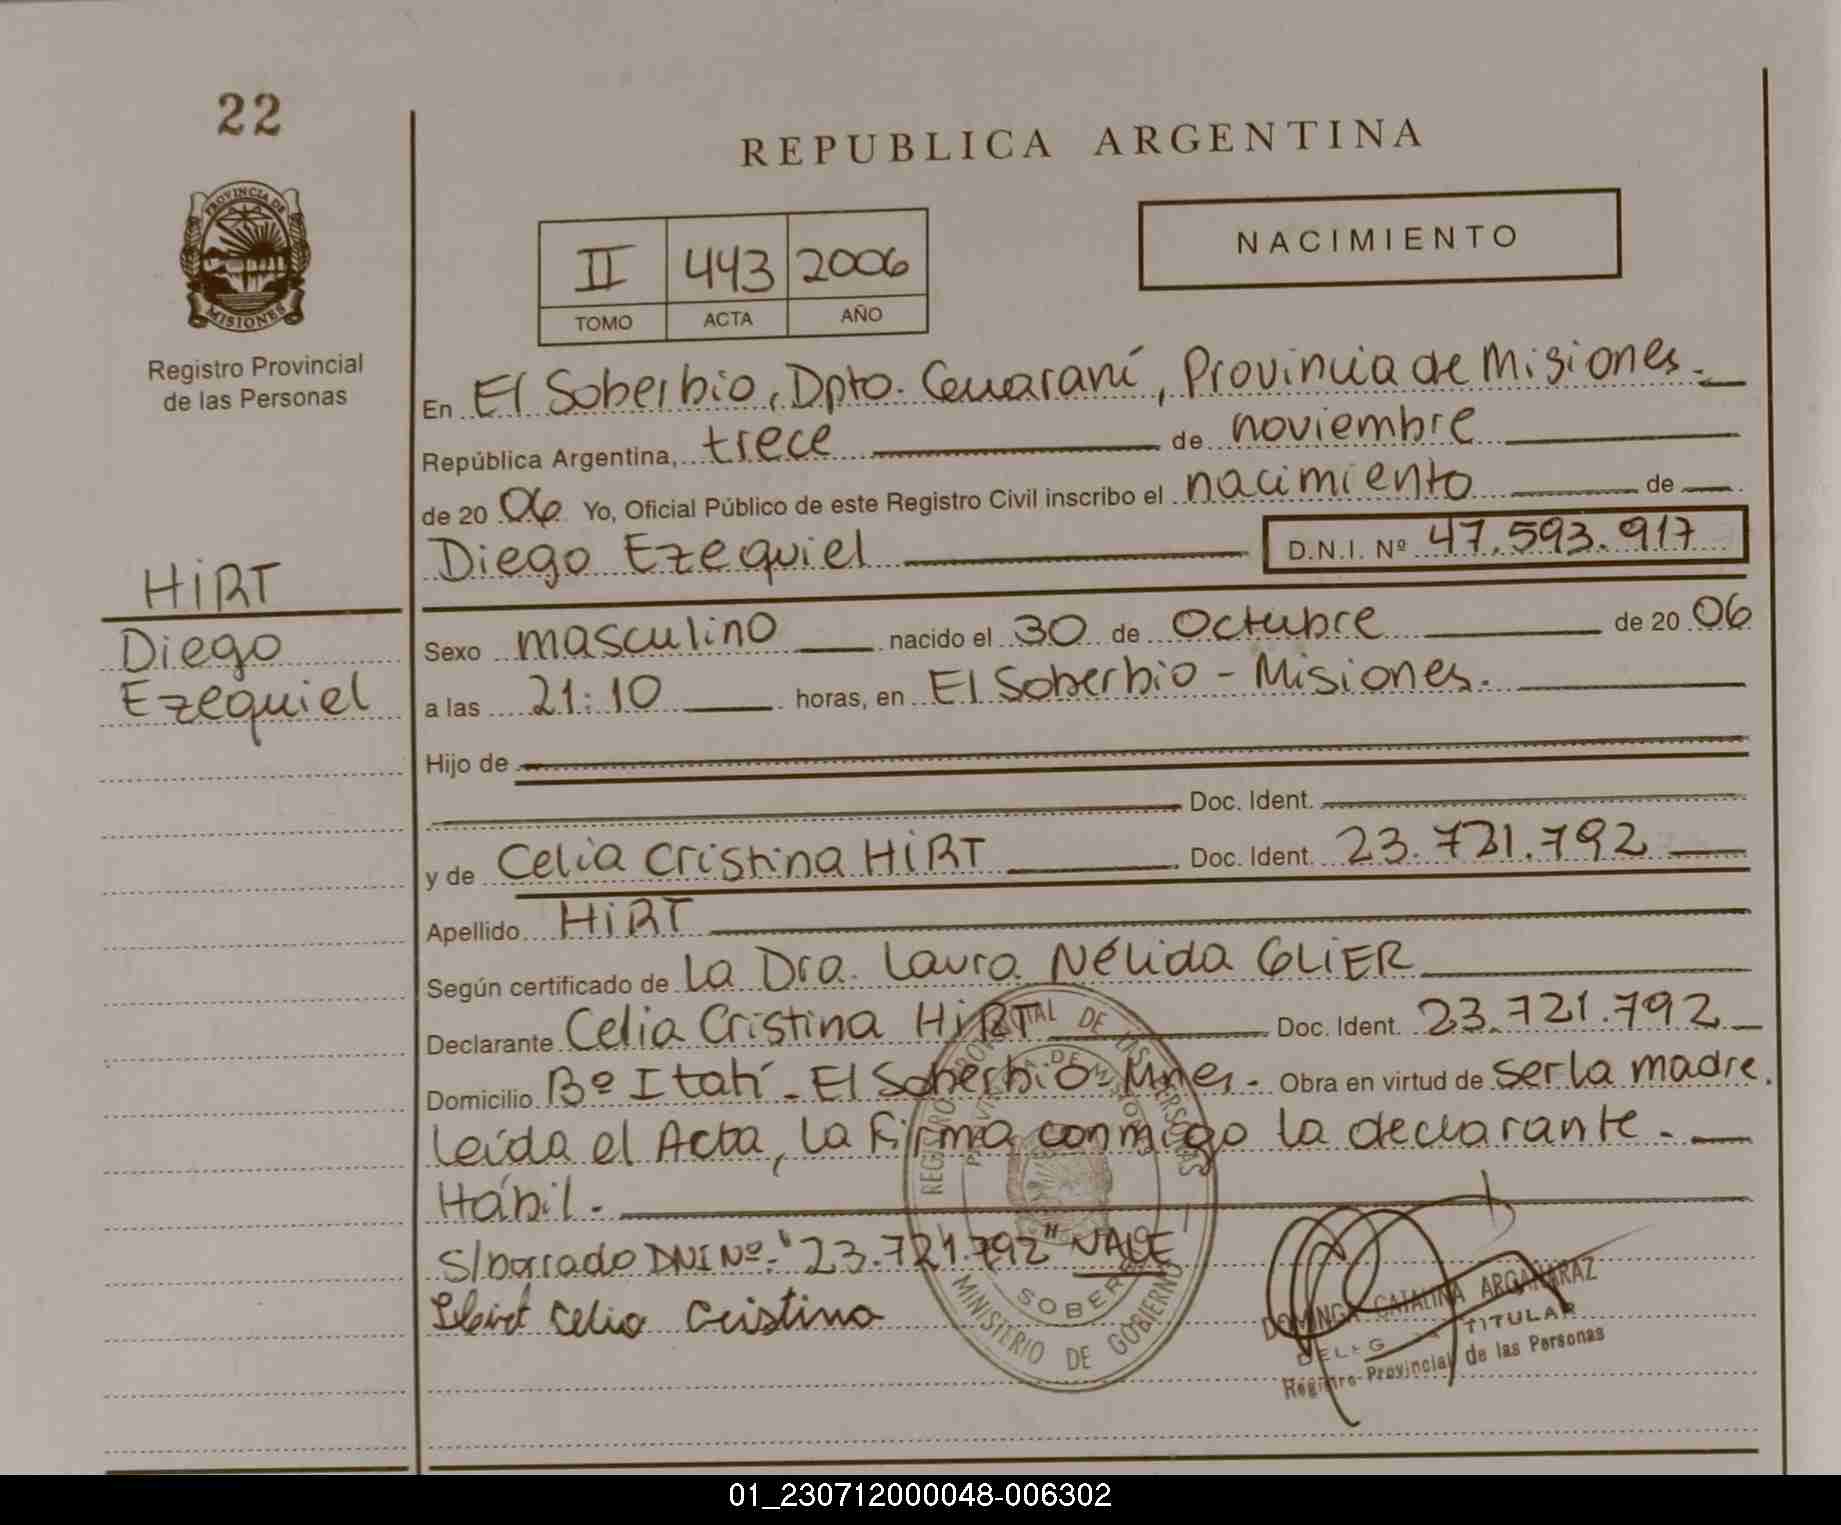 22
REPUBLICA ARGENTINA
PROVINCIA DE
MISIONES
Registro Provincial
de las Personas
II 443 2006
TOMO ACTA AÑO
NACIMIENTO
En El Soberbio, Dpto. Guaraní, Provincia de Misiones.
República Argentina, trece de noviembre
de 2006 Yo, Oficial Público de este Registro Civil inscribo el nacimiento de
Diego Ezequiel D.N.I. Nº 47.593.917
HIRT
Diego
Ezequiel
Sexo masculino nacido el 30 de Octubre de 2006
a las 21:10 horas, en El Soberbio - Misiones.
Hijo de
Doc. Ident.
y de Celia Cristina HIRT Doc. Ident. 23.721.792
Apellido HIRT
Según certificado de la Dra. Laura Nélida GLIER
Declarante Celia Cristina HIRT Doc. Ident. 23.721.792
Domicilio Bº Itatí - El Soberbio - Mnes. Obra en virtud de ser la madre.
Leída el Acta, la firma conmigo la declarante.
Hábil.
S/borrado DNI Nº "23.721.792" VALE
Celia Cristina
REGISTRO PROVINCIAL DE LAS PERSONAS
PROVINCIA DE MISIONES
MINISTERIO DE GOBIERNO
DOMINGA CATALINA ARGAÑARAZ
TITULAR
Registro Provincial de las Personas
01_230712000048-006302